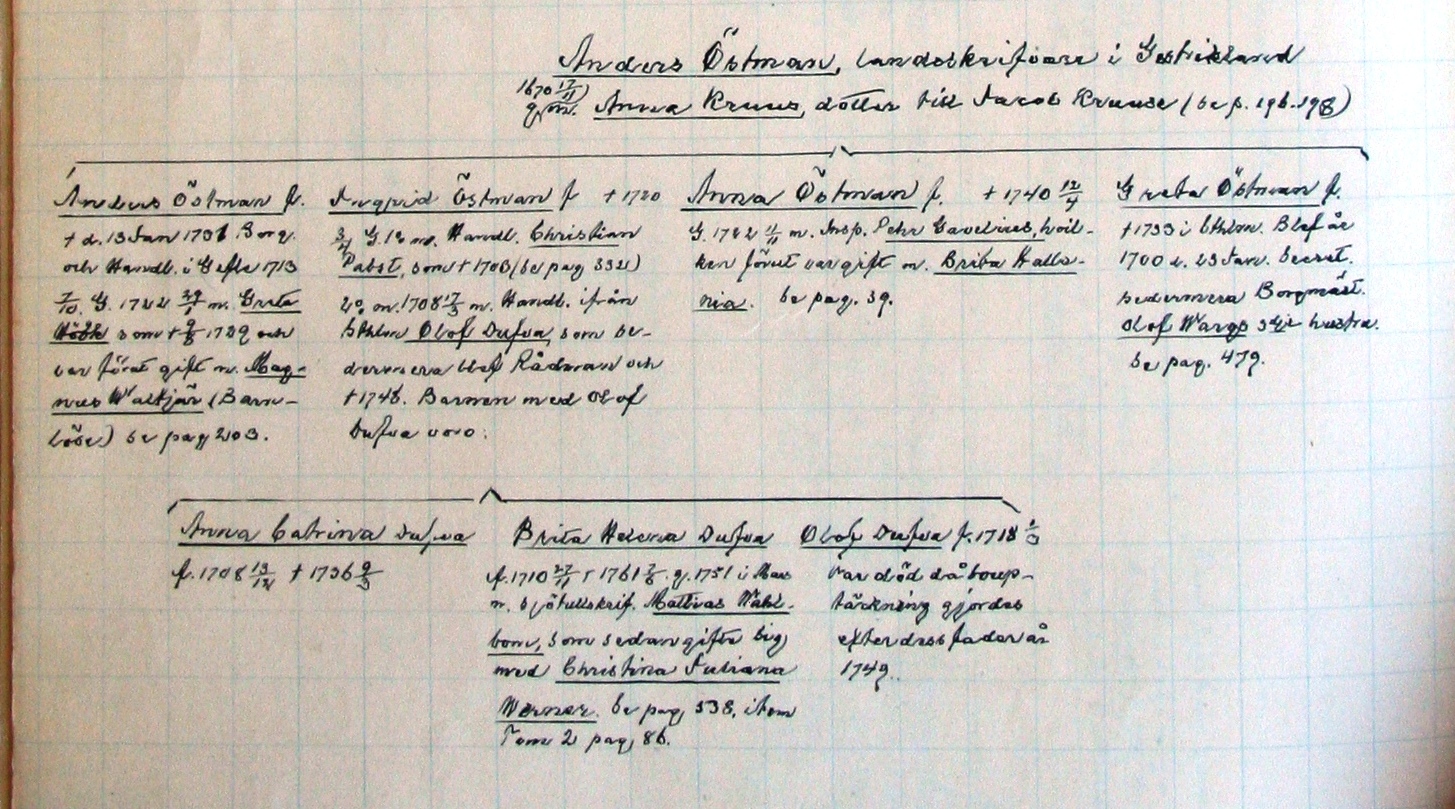 Anders Östman, landskrifvare i Gestrikland
1670 17/11
g. m. Anna Kruus, dotter till Jacob Kruuse (se p. 196-198)
Anders Östman f.
† d. 13 Jan 1731 Borg.
och Handl. i Gefle 1713
7/10. G. 1722 29/1 m. Greta
Höök som † 9/8 1729 och
var förut gift m. Mag-
nus Walkjär (Barn-
löse) se pag 203.
Ingrid Östman f † 1720
3/4 G. 1o m. Handl. Christian
Pabst, som † 1703 (se pag 332)
2o m. 1708 17/3 m. Handl. ifrån
Sthlm Olof Dufva, som se-
dermera blef Rådman och
† 1748. Barnen med Olof
Dufva voro:
Anna Östman f. † 1740 12/4
G. 1722 11/11 m. Insp. Pehr Gavelius, hvil-
ken förut var gift m. Brita Halle-
nia. se pag. 39.
Greta Östman f.
† 1733 i Sthlm. Blef år
1700 d. 23 Jan. Secret.
sedermera Borgmäst.
Olof Wargs hustru.
se pag. 479.
Anna Catrina Dufva
f. 1708 19/12 † 1736 9/3
Brita Helena Dufva
f. 1710 27/11 † 1761 7/8. g. 1751 i Mars
m. Sjötullskrif. Mattias Wahl-
bom, som sedan gifte sig
med Christina Juliana
Werner. Se pag 538, item
Tom 2 pag. 86.
Olof Dufva f. 1718
var död då boup-
täckning gjordes
efter dess fader år
1749.